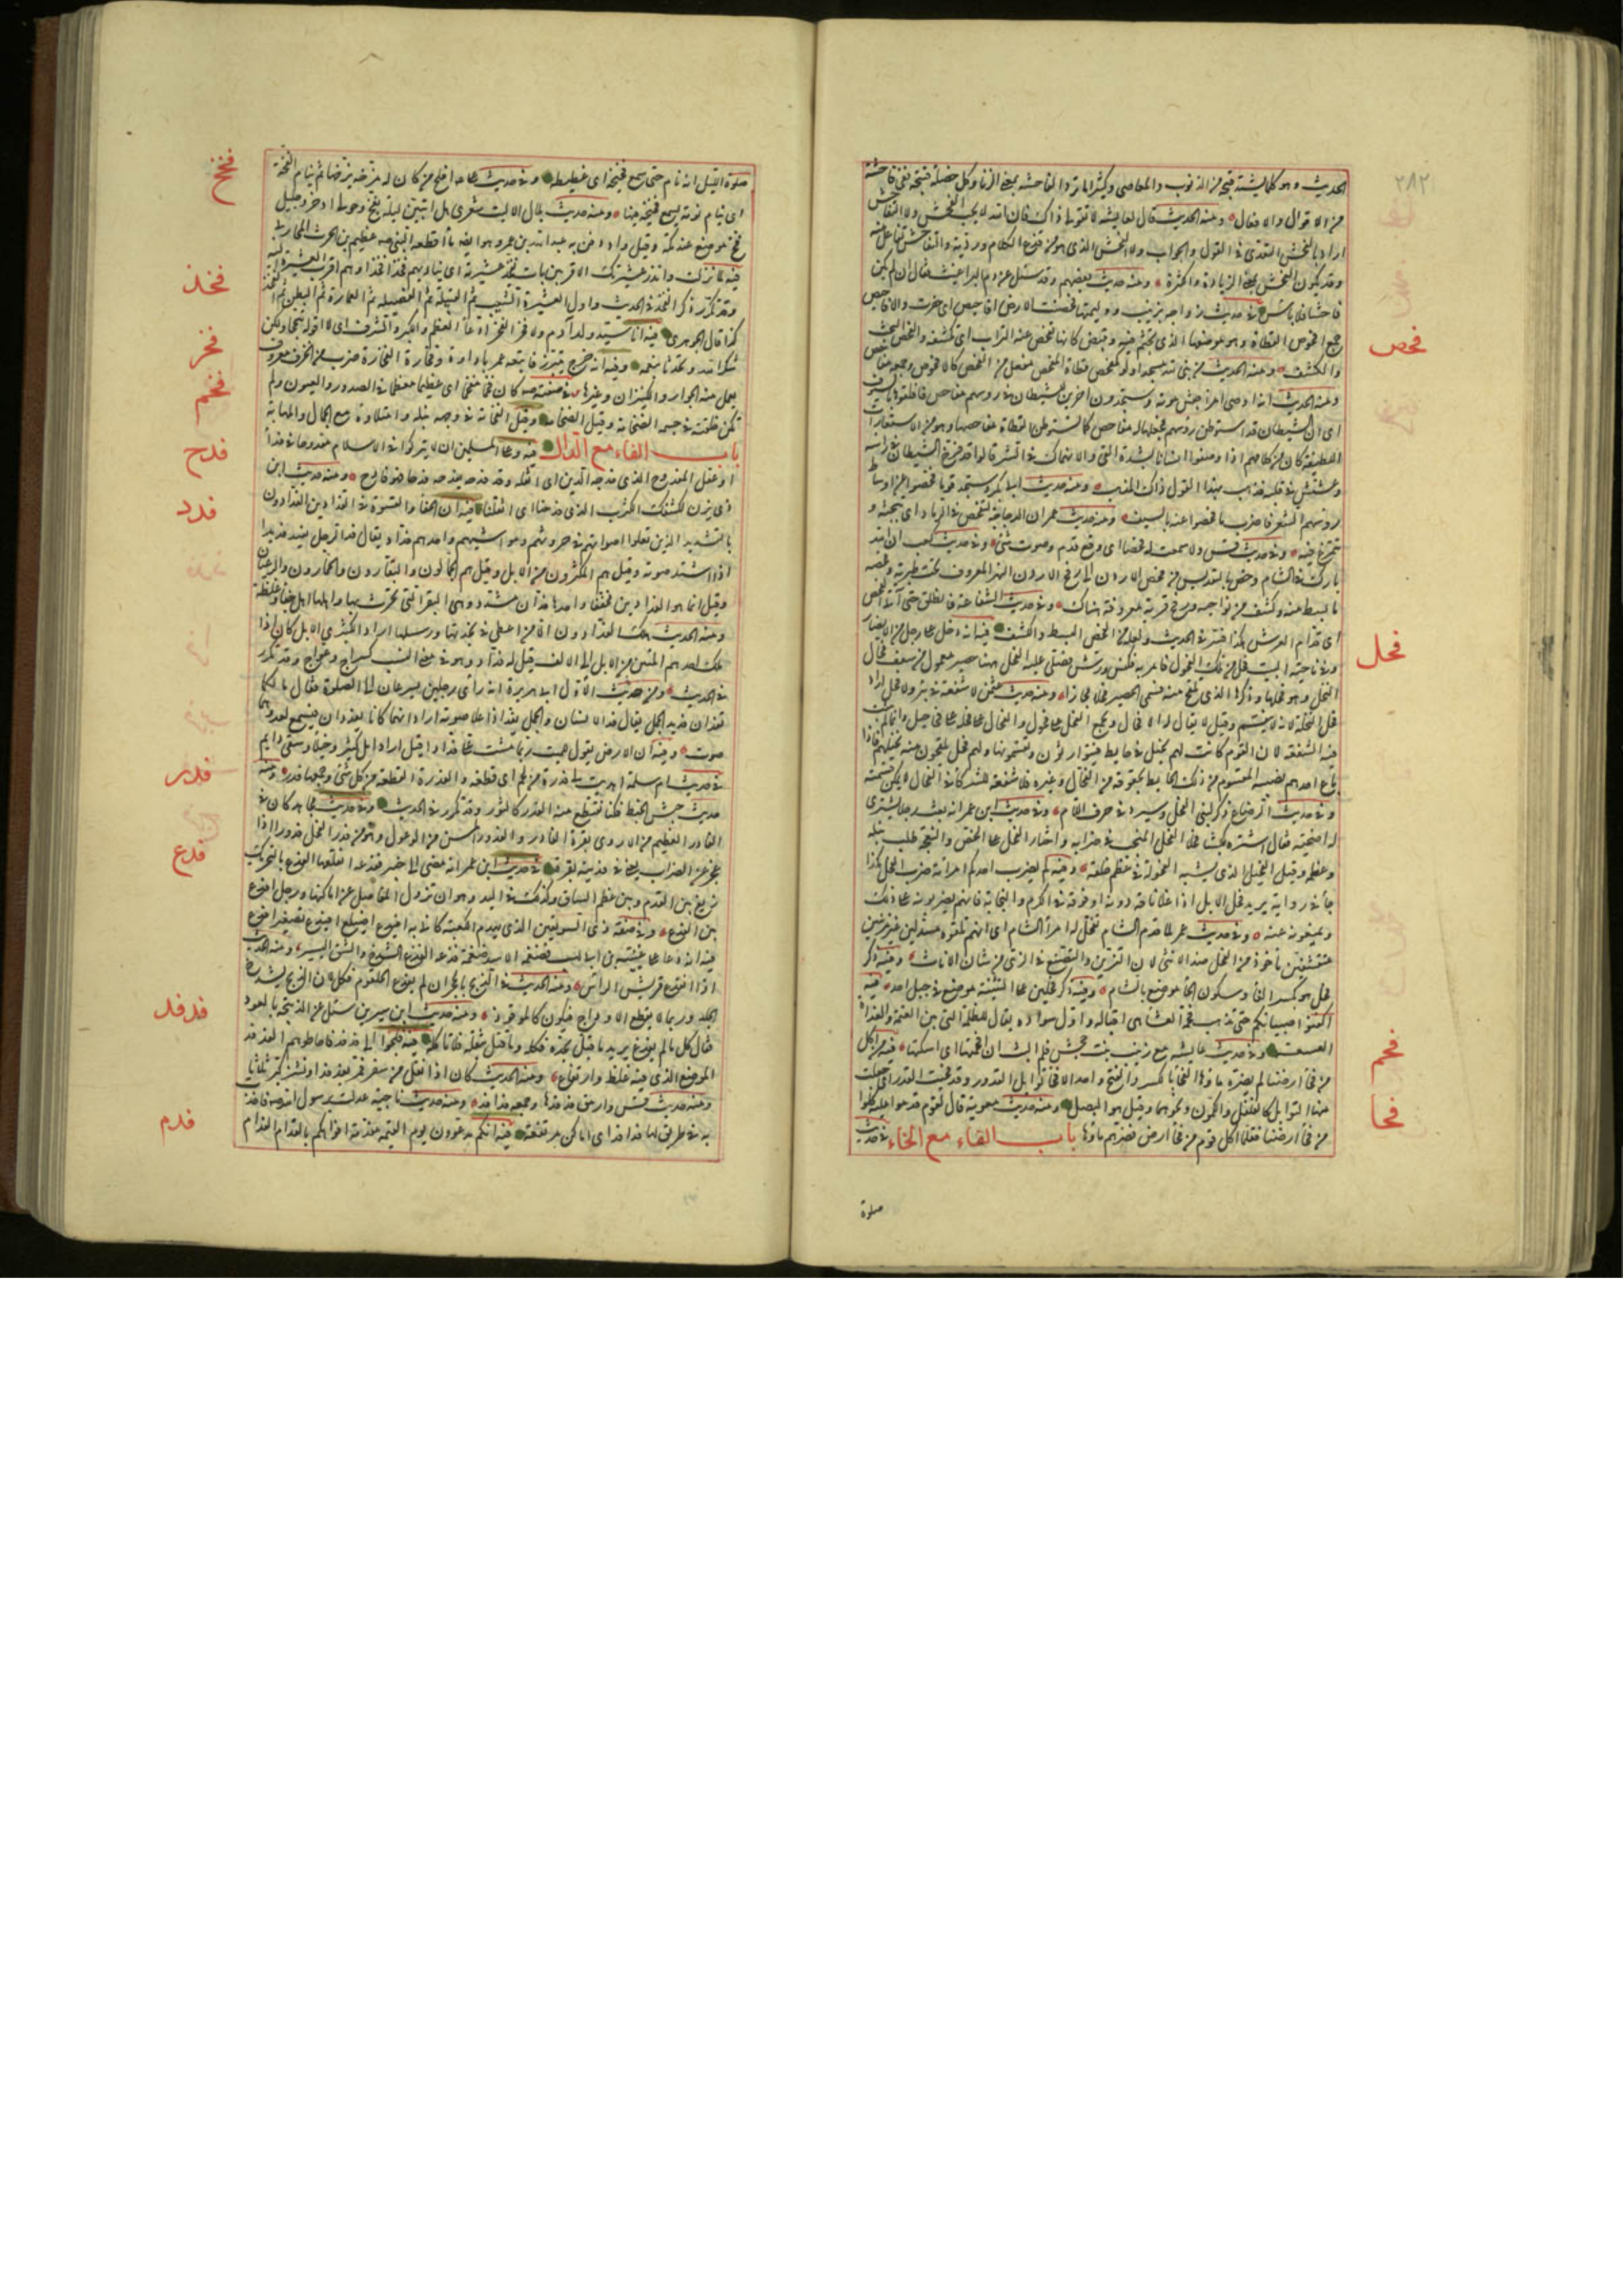 ٢٨٢
الحديث وهو كل ما يشتد قبحه من الذنوب والمعاصى وكثيرا ما ترد الفاحشة بمعنى الزنا وكل خصلة قبيحة فهى فاحشة
من الاقوال والافعال ومنه الحديث قال لعايشة لا تقولى ذلك فان الله لا يحب الفحش ولا التفاحش
اراد بالفحش التعدى فى القول والجواب ولا الفحش الذى هو من قذع الكلام ورديه والتفاحش تفاعل منه
وقد يكون الفحش بمعنى الزيادة والكثرة ومنه حديث بعضهم وقد سئل عن دم البراغيث فقال ان لم يكن
فاحشا فلا باس فى حديث زواجه بزينب ووليمتها فحصت الارض افاحيص اى حفرت والافاحيص
جمع افحوص القطاة وهو موضعها الذى تجثم فيه وتبيض كانها تفحص عنه التراب اى تكشفه والفحص البحث
والكشف ومنه الحديث من بنى لله مسجدا ولو كمفحص قطاة المفحص مفعل من الفحص كالافحوص وجمعه مفاحص
ومنه الحديث انه اوصى امرا جيش موته وستجدون اخرين للشيطان فى رؤسهم مفاحص فافلقوها بالسيوف
اى ان الشيطان قد استوطن رؤسهم فجعلها له مفاحص كما تستوطن القطاة مفاحصها وهو من الاستعارات
اللطيفة لان من كلامهم اذا وصفوا انسانا بشدة الغى والانهماك فى الشر قالوا قد فرخ الشيطان فى راسه
وعشش فى قلبه فذهب بهذا القول ذلك المذهب ومنه حديث ابى بكر وستجد قوما فحصوا عن اوساط
رؤسهم الشعر فاضرب ما فحصوا عنه بالسيف ومنه حديث عمر ان الدجاجة لتفحص فى الرماد اى تبحثه و
تتمرغ فيه وفى حديث قس ولا سمعت له فحصا اى وقع قدم وصوت مشى وفى حديث كعب ان الله
بارك فى الشام وخص بالتقديس من فحص الاردن الى رفح الاردن النهر المعروف تحت طبرية وفحصه
ما بسط منه وكشف من نواحيه ورفح قرية معروفة هناك وفى حديث الشفاعة فانطلق حتى اتى الفحص
اى قدام العرش هكذا فسر فى الحديث ولعله من الفحص البسط والكشف فيه انه دخل على رجل من الانصار
وفى ناحية البيت فحل من تلك الفحول فامر به فكنس ورش فصلى عليه الفحل ههنا حصير معمول من سعف فحال
النخل وهو فحلها وذكرها الذى تلقح منه فسمى الحصير فحلا مجازا ومنه حديث عثمن لا شفعة فى بئر ولا فحل اراد
فحل النخلة لانه لا ينقسم وقيل لا يقال له الا فحال ويجمع الفحل على فحول والفحال على فحاحيل وانما لم تثبت
فيه الشفعة لان القوم كانت لهم نخيل فى حايط فيتوارثون ويقتسمونها ولهم فحل يلقحون منه نخيلهم فاذا
باع احدهم نصيبه المقسوم من ذلك الحايط بحقوقه من الفحال وغيره فلا شفعة للشركاء فى الفحال لا يمكن قسمته
وفى حديث الرضاع ذكر لبن الفحل وسيرد فى حرف اللام وفى حديث ابن عمر انه بعث رجلا يشترى
له اضحية فقال اشتره كبشا فحلا الفحل المنجب فى ضرابه واختار الفحل على الخصى والنعجة طلب نبله
وعظمه وقيل الفحيل الذى يشبه الفحولة فى عظم خلقه وفيه لم يضرب احدكم امراته ضرب الفحل هكذا
جاء فى رواية يريد فحل الابل اذا علا ناقة دونه او فوقه فى الكرم والنجابة فانهم يضربونه على ذلك
ويمنعونه عنه وفى حديث عمر لما قدم الشام تفحل له امراء الشام اى انهم تلقوه متبذلين غير متزينين
متقشفين ماخوذ من الفحل ضد الانثى لان التزين والتصنع فى الزى من شان الاناث وفيه ذكر
فحل هو بكسر الفاء وسكون الحاء موضع بالشام وفيه ذكر فحلين على التثنية موضع فى جبل احد فيه
اكفتوا صبيانكم حتى تذهب فحمة العشاء هى اقباله واول سواده يقال للظلمة التى بين العتمة والغداة
العسعسة وفى حديث عايشة مع زينب بنت جحش فلم البث ان افحمتها اى اسكتها فيه من اكل
من فحا ارضنا لم يضره ماؤها الفحا بالكسر والفتح واحد الافحاء توابل القدور وقد فحيت القدر اى جعلت
فيها التوابل كالفلفل والكمون ونحوهما وقيل هو البصل ومنه حديث معوية قال لقوم قدموا عليه كلوا
من فحا ارضنا فقل ما اكل قوم من فحا ارض فضرهم ماؤها باب الفاء مع الخاء فى حديث
صلوة
فحص
فحل
فحم
فحا
صلوة الليل انه نام حتى سمع فخيخه اى غطيطه وفى حديث على افلح من كان له مزخه يزخها ثم ينام الفخه
اى ينام نومة يسمع فخيخه فيها ومنه حديث بلال الا ليت شعرى هل ابيتن ليلة بفخ وحولى اذخر وجليل
فخ موضع عند مكة وقيل واد دفن به عبد الله بن عمر وهو ايضا ماء اقطعه النبى عظيم بن الحرث المحاربى
فيه لما نزلت وانذر عشيرتك الاقربين بات يفخذ عشيرته اى يناديهم فخذا فخذا وهم اقرب العشيرة اليه
وقد تكرر ذكر الفخذ فى الحديث واول العشيرة الشعب ثم القبيلة ثم الفصيلة ثم العمارة ثم البطن ثم الفخذ
كذا قال الجوهرى فيه انا سيد ولد ادم ولا فخر الفخر ادعاء العظم والكبر والشرف اى لا اقوله تبجحا ولكن
شكرا لله وتحدثا بنعمه وفيه انه خرج يتبرز فاتبعه عمر باداوة وفخارة الفخارة ضرب من الخزف معروف
يعمل منه الجرار والكيزان وغيرها فى صفته كان فخما مفخما اى عظيما معظما فى الصدور والعيون ولم
تكن خلقته فى جسمه الضخامة وقيل الفخامة فى وجهه نبله وامتلاؤه مع الجمال والمهابة
باب الفاء مع الدال فيه وعلى المسلمين ان لا يتركوا فى الاسلام مفدوحا فى فداء
او عقل المفدوح الذى فدحه الدين اى اثقله وقد فدحه يفدحه فدحا فهو فادح ومنه حديث ابن
ذى يزن لكشفك الكرب الذى فدحنا اى اثقلنا فيه ان الجفاء والقسوة فى الفدادين الفدادون
بالتشديد الذين تعلوا اصواتهم فى حروثهم ومواشيهم واحدهم فداد يقال فد الرجل يفد فديدا
اذا اشتد صوته وقيل هم المكثرون من الابل وقيل هم الجمالون والبقارون والحمارون والرعيان
وقيل انما هو الفدادين مخففا واحدها فدان مشدد وهى البقر التى يحرث بها واهلها اهل جفاء وغلظة
ومنه الحديث هلك الفدادون الا من اعطى فى نجدتها ورسلها اراد الكثيرى الابل كان اذا
ملك احدهم المئين من الابل الى الالف قيل له فداد وهو فى معنى النسب كسراج وعواج وقد تكرر
فى الحديث ومن حديث الاول ابى هريرة انه راى رجلين يسرعان الى الصلوة فقال ما لكما
تفدان فديد الجمل يقال فد الانسان والجمل يفد اذا علا صوته اراد انهما كانا يعدوان فيسمع لعدوهما
صوت وفيه ان الارض تقول للميت ربما مشيت على فدادا قيل اراد ذا مال كثير وخيلاء وسعى دايم
فى حديث ام سلمة اهديت لى فدرة من لحم اى قطعة والفدرة القطعة من كل شئ وجمعها فدر ومنه
حديث جيش الخبط فكنا نقتطع منه الفدر كالثور وقد تكرر فى الحديث وفى حديث مجاهد كان فى
الفادر العظيم من الاروى بقرة الفادر والفدور المسن من الوعول وهو من فدر الفحل فدورا اذا
عجز عن الضراب يعنى فى فديته بقرة فى حديث ابن عمر انه مضى الى خيبر ففدعه اهلها الفدع بالتحريك
زيغ بين القدم وبين عظم الساق وكذلك فى اليد وهو ان تزول المفاصل عن اماكنها ورجل افدع
بين الفدع وفى صفة ذى السويقتين الذى يهدم الكعبة كانى به افيدع اصيلع افيدع تصغير افدع
فيه انه دعا على عتيبة بن ابى لهب فضغمه الاسد ضغمة فدغه الفدغ الشدخ والشق اليسير ومنه الحديث
اذا تفدغ قريش الراس ومنه الحديث فى الذبح بالحجر ان لم يفدغ الحلقوم فكل لان الذبح يشدخ
الجلد وربما لا يقطع الاوداج فيكون كالموقوذ ومنه حديث ابن سيرين سئل عن الذبيحة بالعود
فقال كل ما لم يفدغ يريد ما قتل بحده فكله وما قتل بثقله فلا تاكله فيه فلجوا الى فدفد فاحاطوا بهم الفدفد
الموضع الذى فيه غلظ وارتفاع ومنه الحديث كان اذا قفل من سفر فمر بفدفد او نشز كبر ثلاثا
ومنه حديث قس وارمق فدفدها وجمعه فدافد ومنه حديث ناجية عدلت برسول الله فاخذت
به فى طريق لها فدافد اى اماكن مرتفعة فيه انكم مدعوون يوم القيمة مفدمة افواهكم بالفدام الفدام
فخخ
فخذ
فخر
فخم
فدح
فدد
فدر
فدع
فدفد
فدم